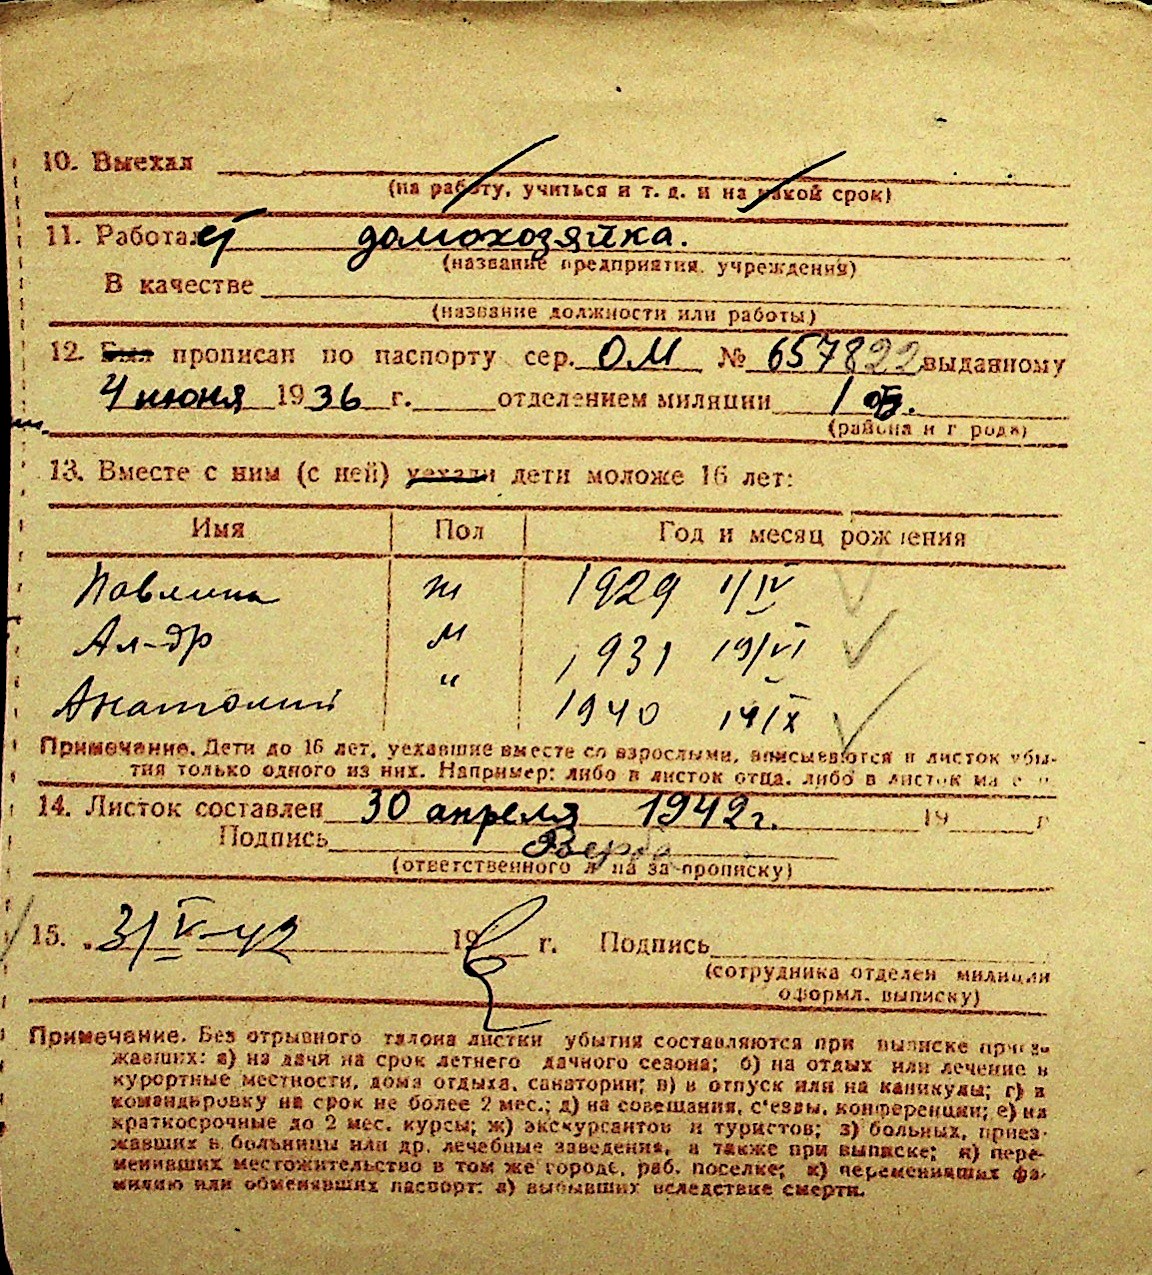 10. Выехал
(на работу, учиться и т. д. и на какой срок)
11. Работает домохозяйка.
(название предприятия, учреждения)
В качестве
(название должности или работы)
12. Был прописан по паспорту сер. ОМ № 657822 выданному
4 июня 1936 г. отделением милиции 1
(района и города)
13. Вместе с ним (с ней) уехали дети моложе 16 лет:
Имя Пол Год и месяц рождения
Павлина ж 1929 1/IV
Ал-др м 1931 19/VI
Анатолий " 1940 14/X
Примечание. Дети до 16 лет, уехавшие вместе со взрослыми, вписываются в листок убы-
тия только одного из них. Например: либо в листок отца, либо в листок
14. Листок составлен 30 апреля 1942 г. 19 г
Подпись
(ответственного за прописку)
15. 31/V-42 19 г. Подпись
(сотрудника отделен милиции
оформл. выписку)
Примечание. Без отрывного талона листки убытия составляются при выписке приез-
жавших: а) на дачи на срок летнего дачного сезона; б) на отдых или лечение в
курортные местности, дома отдыха, санатории; в) в отпуск или на каникулы; г) в
командировку на срок не более 2 мес.; д) на совещания, с'езды, конференции; е) на
краткосрочные до 2 мес. курсы; ж) экскурсантов и туристов; з) больных, приез-
жавших в больницы или др. лечебные заведения, а также при выписке; и) пере-
менивших местожительство в том же городе, раб. поселке; к) переменивших фа-
милию или обменявших паспорт: л) выбывших вследствие смерти.